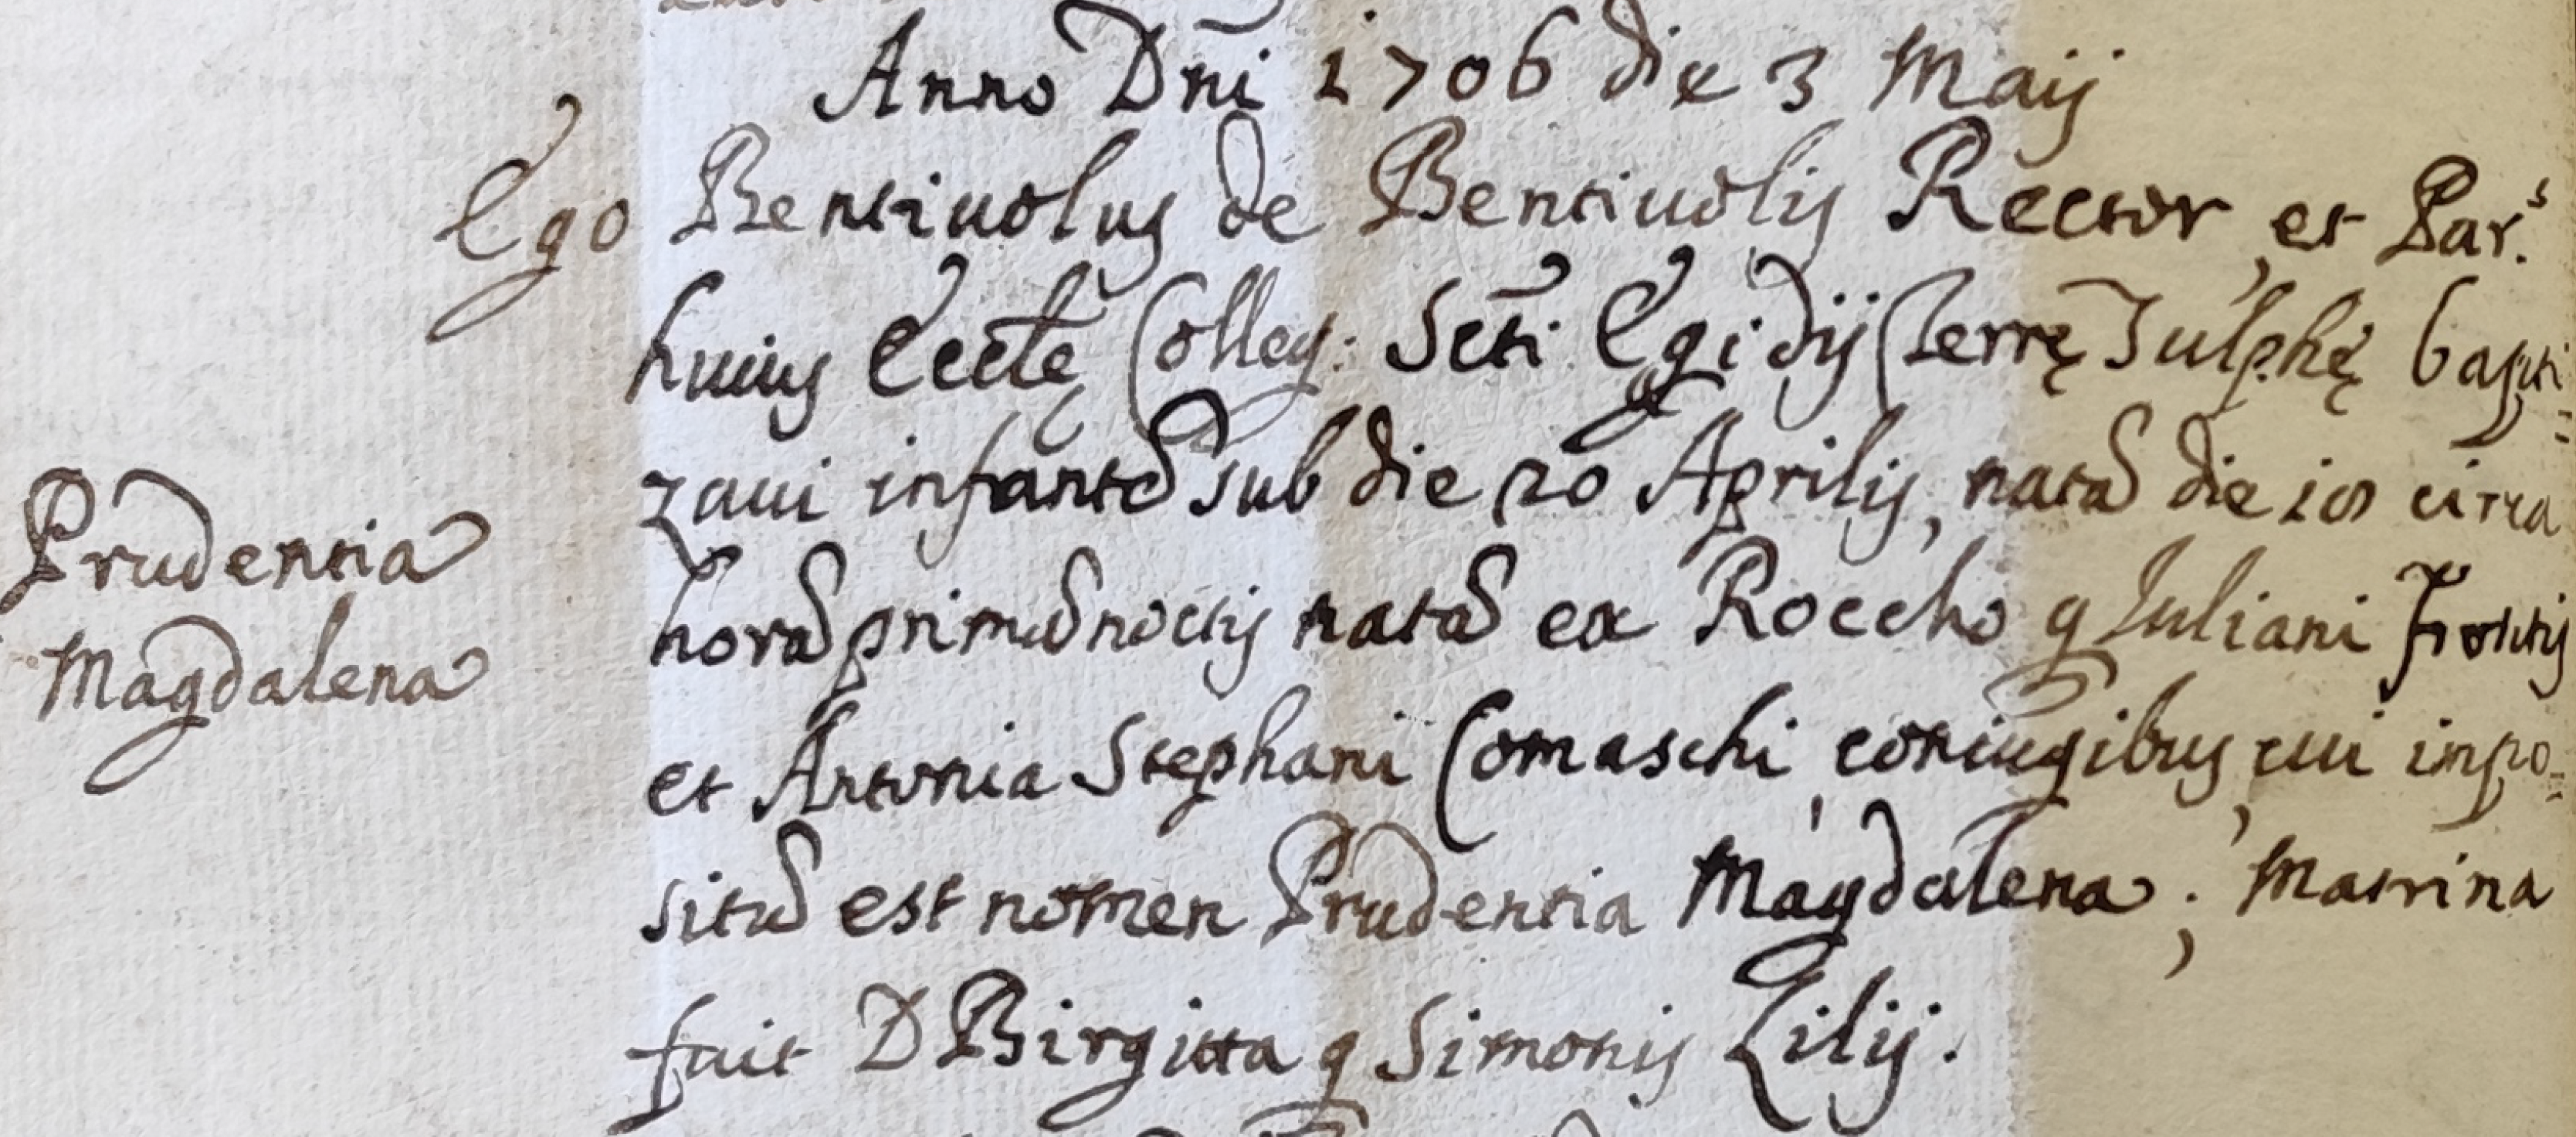 Anno Dñi 1706 die 3 Maij
Ego Bentiuolus de Bentiuolis Rector, et Par.s
huius Eccle Colleg: Scti Egidij Terrę Sulphę bapti=
zaui infantem sub die 20 Aprilis, natam die circa
horam primam noctis natam ex Roccho q Iuliani
et Antonia Stephani Comaschi coniugibus, cui impo=
situm est nomen Prudentia Magdalena; Matrina
fuit D Birgitta q Simonis Lilij.
Prudentia
Magdalena